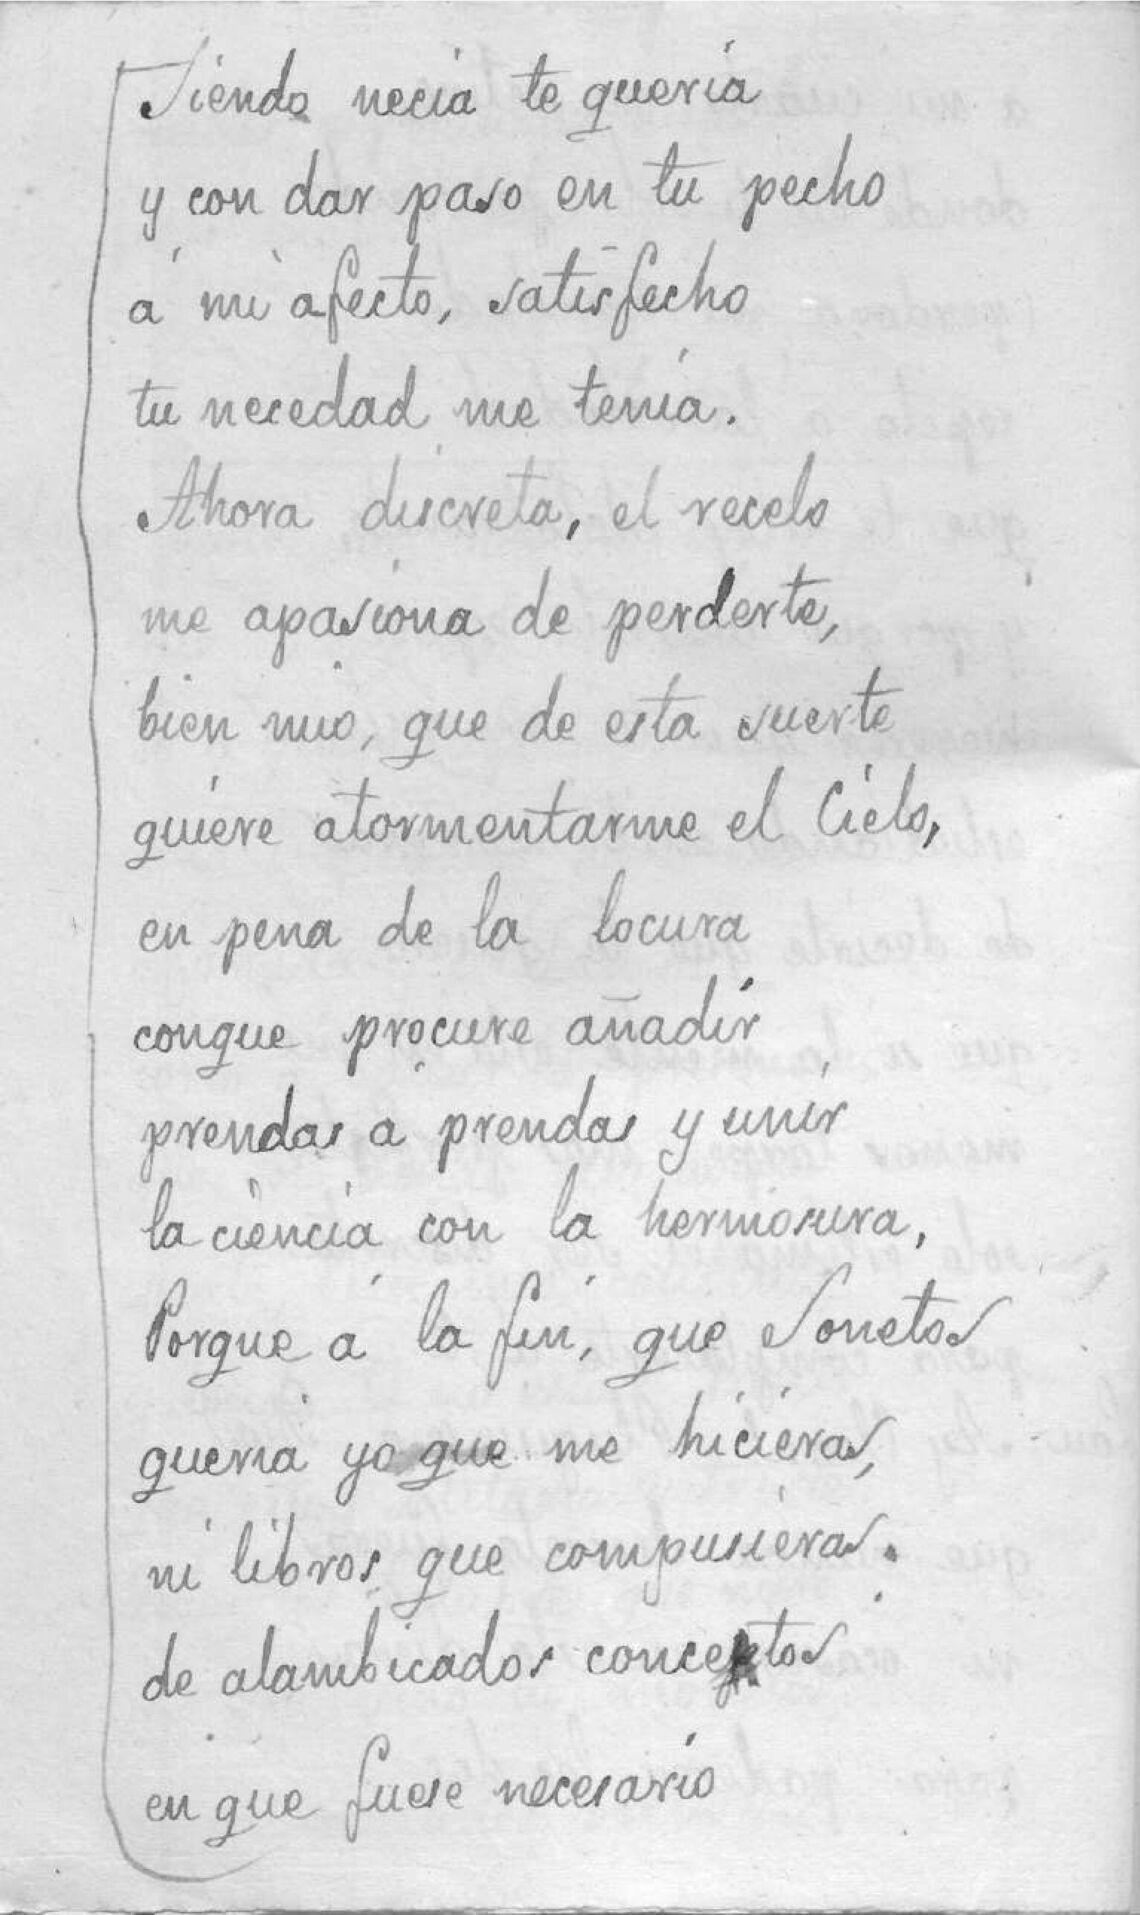 Siendo necia te quería
y con dar paso en tu pecho
á mi afecto, satisfecho
tu necedad me tenía.
Ahora discreta, el recelo
me apasiona de perderte,
bien mio, que de esta suerte
quiere atormentarme el Cielo,
en pena de la locura
conque procure añadir
prendas a prendas y unir
la ciencia con la hermosura,
Porque á la fin, que Sonetos
queria yo que me hicieras,
ni libros que compusieras.
de alambicados conceptos
en que fuese necesario